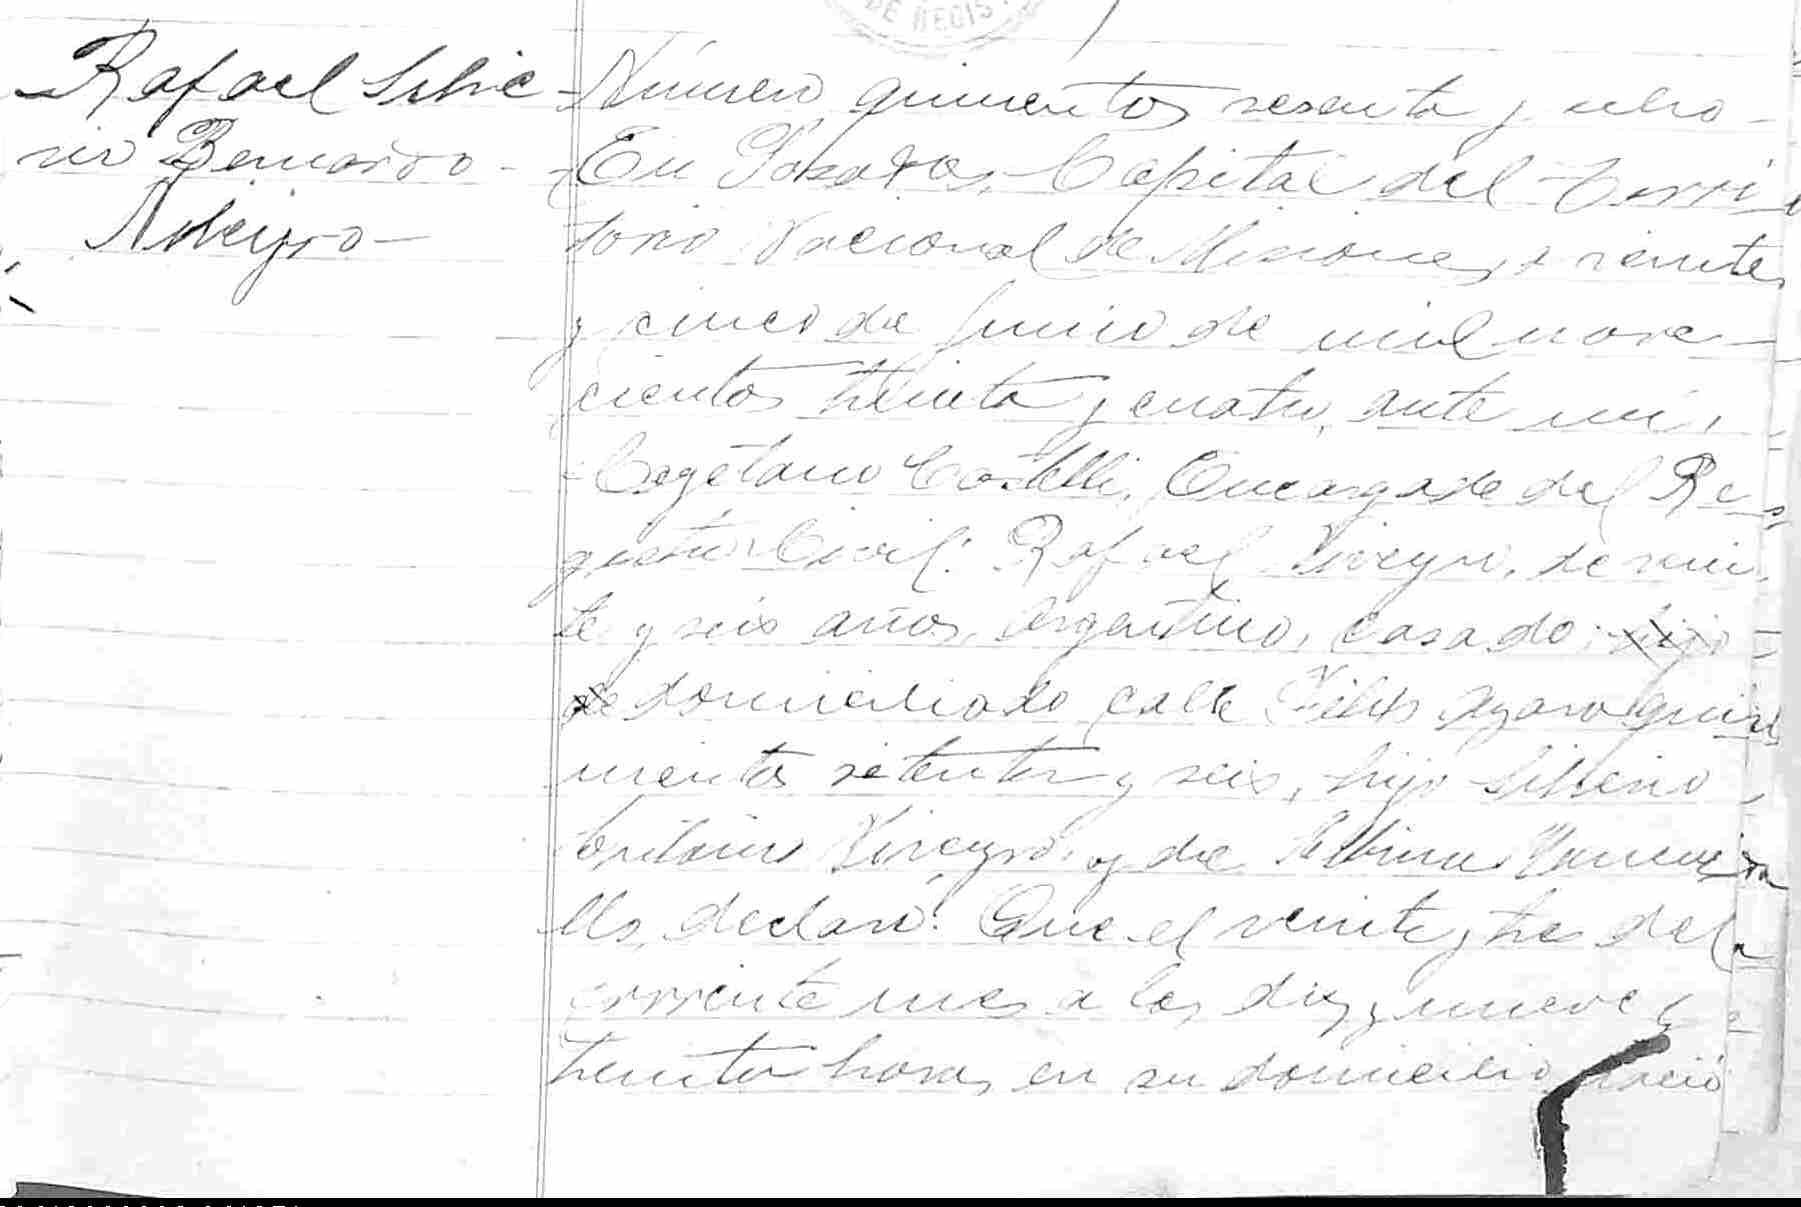 DE REGIS
Rafael Silve
rio Bernardo
Niveyro
Número quinientos sesenta y ocho
En Posadas, Capital del Terri
torio Nacional de Misiones, a veinte
y cinco de Junio de mil nove
cientos treinta y cuatro, ante mi,
Cayetano Castelli, Encargado del Re
gistro Civil: Rafael Niveyro, de vein
te y seis años, argentino, casado, hijo
de domiciliado calle Felix Azara quin
nientos setenta y seis, hijo Silverio
Niveyro y de Albina
declaró: Que el veinte y tres del
corriente mes a las diez y nueve y
treinta horas, en su domicilio nació